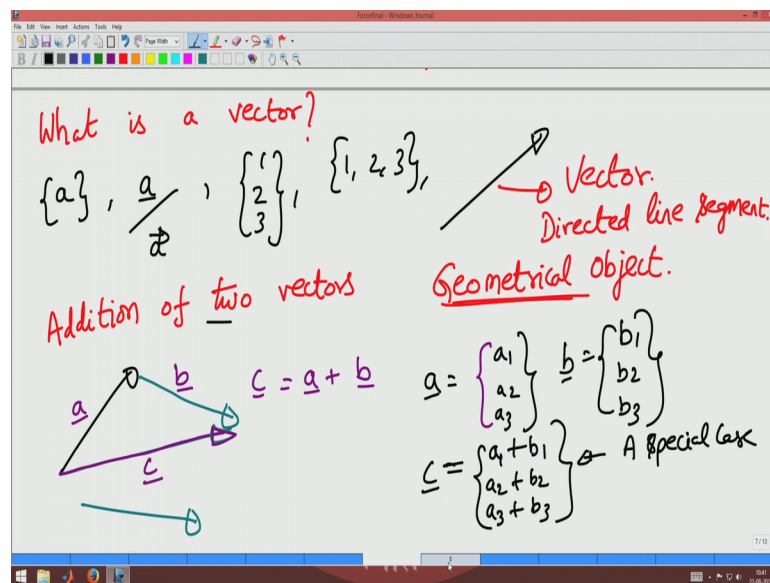 Forcefinal - Windows Journal
File Edit View Insert Actions Tools Help
Page Width
B I
What is a vector?
{a}, a / a⃗, {1 2 3}, {1, 2, 3},
Vector.
Directed line segment.
Geometrical object.
Addition of two vectors
a b c = a + b
c
a = {a1 a2 a3} b = {b1 b2 b3}
c = {a1 + b1 a2 + b2 a3 + b3} A special case
7/13
8
10:41